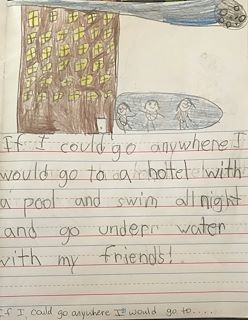 If I could go anywhere I
would go to a hotel with
a pool and swim all night
and go under water
with my friends!
If I could go anywhere I would go to.....